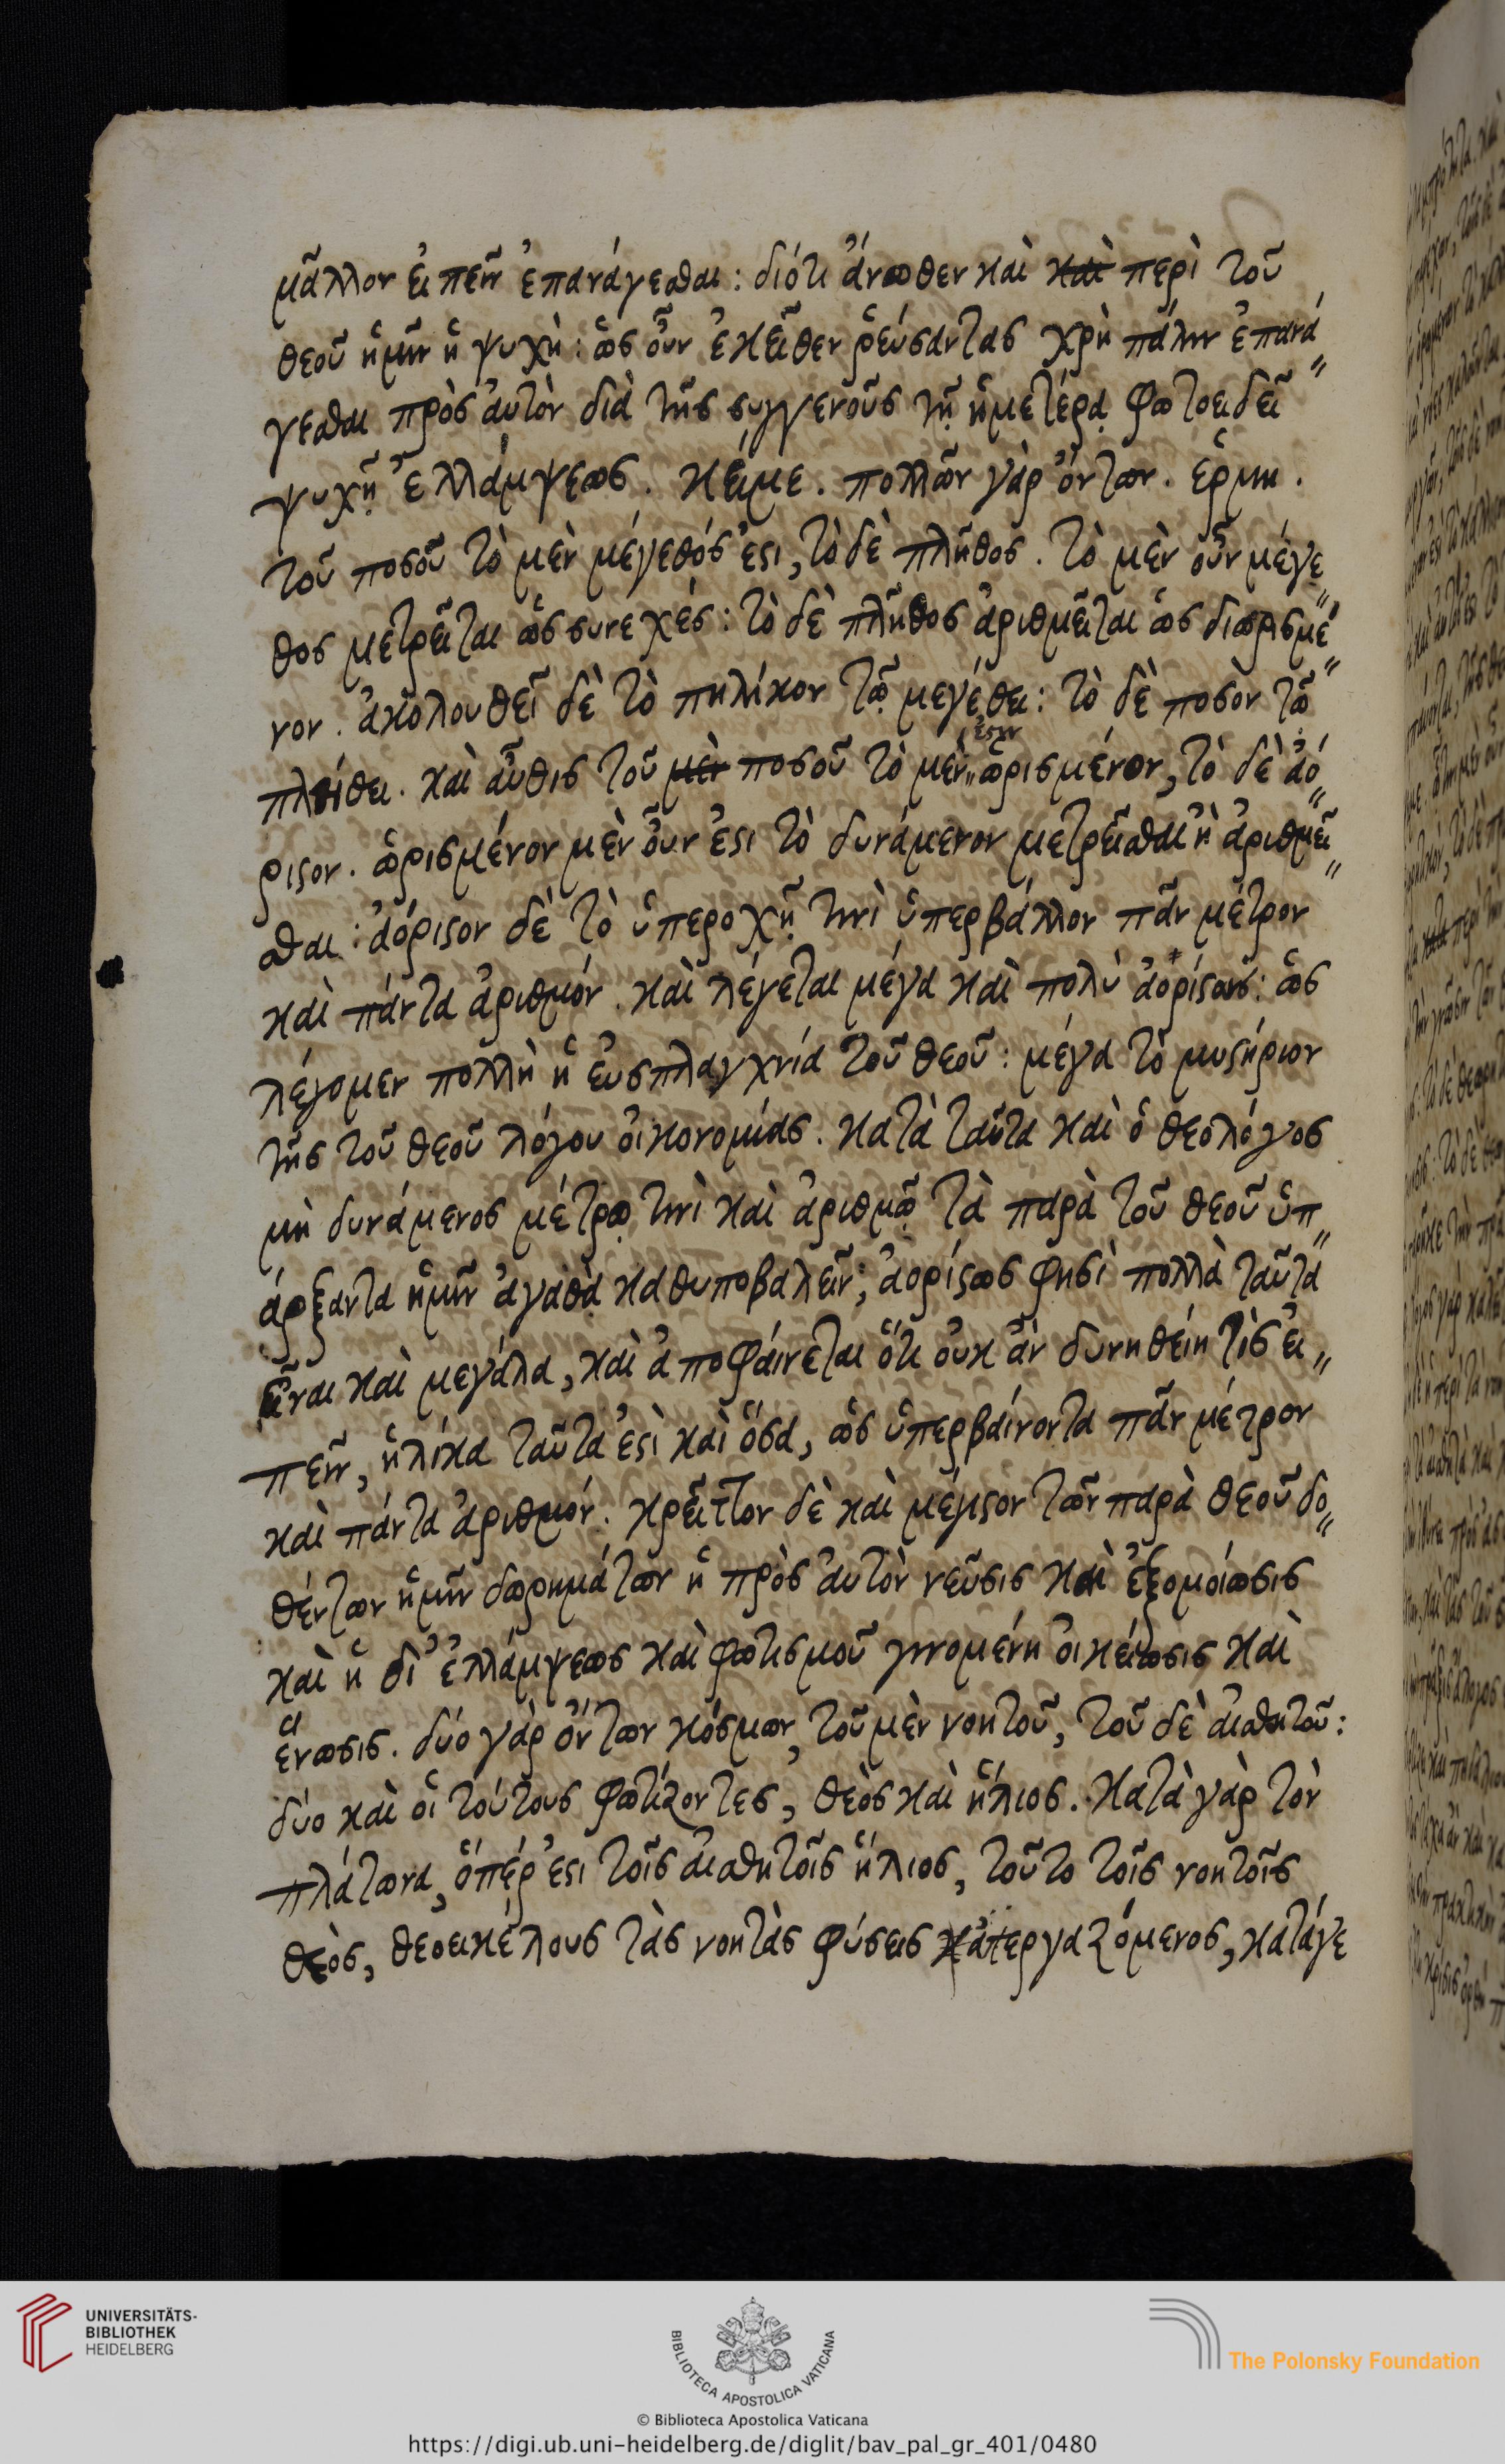 μᾶλλον εἰπεῖν ἐπανάγεσθαι: διότι ἄνωθεν καὶ καὶ περὶ τοῦ
θεοῦ ἡμῖν ἡ ψυχὴ: ὡς οὖν ἐκεῖθεν ῥεύσαντας χρὴ πάλιν ἐπανά〃
γεσθαι πρὸς αὐτὸν διὰ τῆς συγγενοῦς τῇ ἡμετέρᾳ φωτοειδεῖ
ψυχῇ ἐλλάμψεως. κείμε. πολλῶν γὰρ ὄντων. ἑρμη.
τοῦ ποσοῦ τὸ μὲν μέγεθός ἐστι, τὸ δὲ πλῆθος. τὸ μὲν οὖν μέγε〃
θος μετρεῖται ὡς συνεχές: τὸ δὲ πλῆθος ἀριθμεῖται ὡς διωρισμέ〃
νον. ἀκολουθεῖ δὲ τὸ πηλίκον τῷ μεγέθει: τὸ δὲ ποσὸν τῷ
πλήθει. καὶ αὖθις τοῦ μὲν ποσοῦ τὸ μὲν〃 ἐστιν ὡρισμένον, τὸ δὲ ἀό〃
ριστον. ὡρισμένον μὲν οὖν ἐστι τὸ δυνάμενον μετρεῖσθαι ἢ ἀριθμεῖ〃
σθαι: ἀόριστον δὲ τὸ ὑπεροχῇ τινὶ ὑπερβάλλον πᾶν μέτρον
καὶ πάντα ἀριθμόν. καὶ λέγεται μέγα καὶ πολὺ ἀορίστως: ὡς
λέγομεν πολλὴ ἡ εὐσπλαγχνία τοῦ θεοῦ: μέγα τὸ μυστήριον
τῆς τοῦ θεοῦ λόγου οἰκονομίας. κατὰ ταῦτα καὶ ὁ θεολόγος
μὴ δυνάμενος μέτρῳ τινὶ καὶ ἀριθμῷ τὰ παρὰ τοῦ θεοῦ ὑπ〃
άρξαντα ἡμῖν ἀγαθὰ καθυποβαλεῖν; ἀορίστως φησὶ πολλὰ ταῦτα
εἶναι καὶ μεγάλα, καὶ ἀποφαίνεται ὅτι οὐκ ἂν δυνηθείη τὶς εἰ〃
πεῖν, ἡλίκα ταῦτα ἐστὶ καὶ ὅσα, ὡς ὑπερβαίνοντα πᾶν μέτρον
καὶ πάντα ἀριθμόν. κρεῖττον δὲ καὶ μέγιστον τῶν παρὰ θεοῦ δο〃
θέντων ἡμῖν δωρημάτων ἡ πρὸς αὐτὸν νεῦσις καὶ ἐξομοίωσις
καὶ ἡ δι' ἐλλάμψεως καὶ φωτισμοῦ γινομένη οἰκείωσις καὶ
ἕνωσις. δύο γὰρ ὄντων κόσμων, τοῦ μὲν νοητοῦ, τοῦ δὲ αἰσθητοῦ:
δύο καὶ οἱ τούτους φωτίζοντες, θεὸς καὶ ἥλιος. κατὰ γὰρ τὸν
πλάτωνα, ὅπέρ ἐστι τοῖς αἰσθητοῖς ἥλιος, τοῦτο τοῖς νοητοῖς
θεὸς, θεοεικέλους τὰς νοητὰς φύσεις κατεργαζόμενος, κατάγε
UNIVERSITÄTS-
BIBLIOTHEK
HEIDELBERG
BIBLIOTECA APOSTOLICA VATICANA
The Polonsky Foundation
© Biblioteca Apostolica Vaticana
https://digi.ub.uni-heidelberg.de/diglit/bav_pal_gr_401/0480